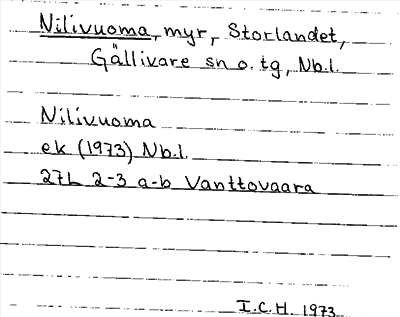 Nilivuoma, myr, Storlandet,
Gällivare sn o. tg, Nb.l.
Nilivuoma
ek (1973) Nb.l.
27L 2-3 a-b Vanttovaara
I.C.H. 1973